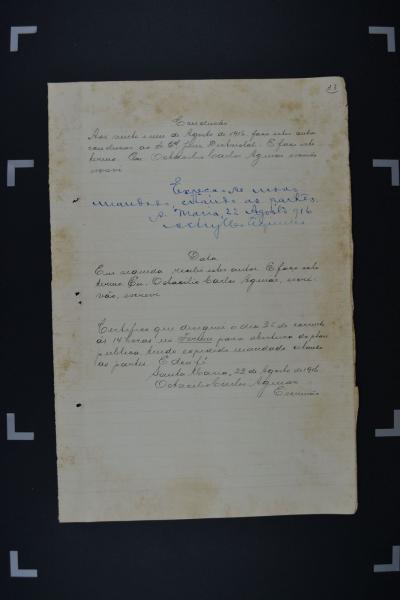 13
Conclusão
Aos vinte e um de Agosto de 1916, faço estes autos
conclusos ao Sr. Juiz Districtal. E faço este
termo. Eu, Octacilio Carlos Aguiar, escrivão
escrevi
Expeça-se novo
mandado, citando as partes.
S. Maria, 22 Agosto 916
Data
Em seguida, recebi estes autos. E faço este
termo. Eu, Octacilio Carlos Aguiar, escri-
vão, escrevi.
Certifico que designei o dia 26 do corrente
ás 14 horas, no Forum para abertura da
publica, tendo expedido mandado citando
as partes. E dou fé
Santa Maria, 22 de Agosto de 1916
Octacilio Carlos Aguiar
Escrivão